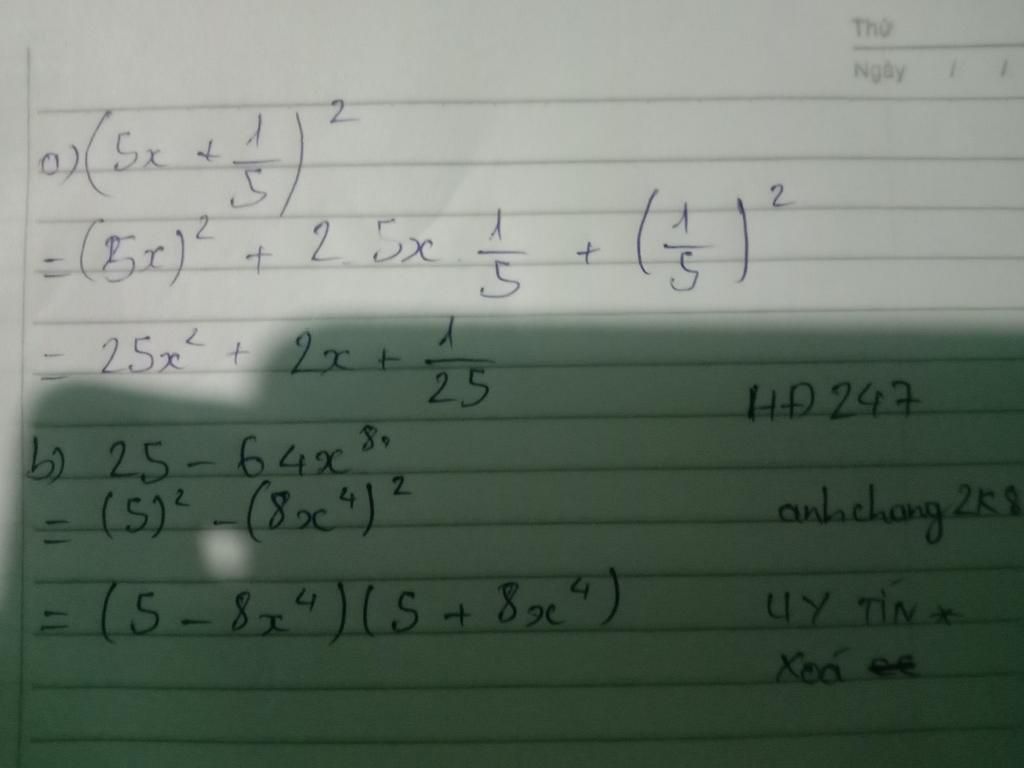 Thứ
Ngày / /
a) (5x + 1/5)²
= (5x)² + 2 . 5x . 1/5 + (1/5)²
= 25x² + 2x + 1/25
HĐ 247
b) 25 - 64x⁸
= (5)² - (8x⁴)²
anhchang2K8
= (5 - 8x⁴)(5 + 8x⁴)
UY TÍN *
Xoá